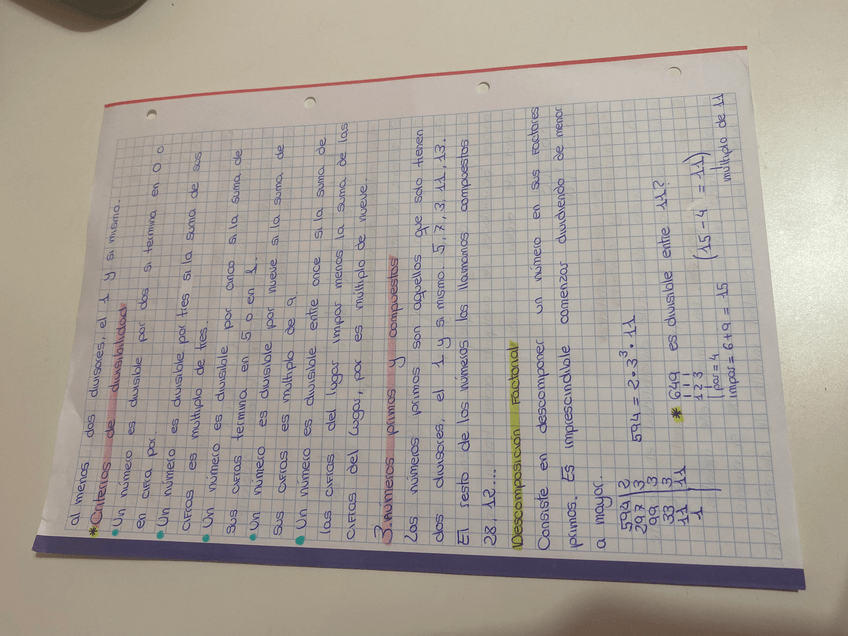 al menos dos divisores, el 1 y si mismo.
*Criterios de divisibilidad
• Un número es divisible por dos si termina en 0 o
en cifra par.
• Un número es divisible por tres si la suma de sus
cifras es múltiplo de tres.
• Un número es divisible por cinco si la suma de
sus cifras termina en 5 o en 1.
• Un número es divisible por nueve si la suma de
sus cifras es múltiplo de 9.
• Un número es divisible entre once si la suma de
las cifras del lugar impar menos la suma de las
cifras del lugar, par es múltiplo de nueve.
3. Números primos y compuestos
Los números primos son aquellos que solo tienen
dos divisores, el 1 y si mismo. 5, 7, 3, 11, 13.
El resto de los números los llamamos compuestos
28 12....
Descomposición Factorial
Consiste en descomponer un número en sus factores
primos. Es imprescindible comenzar dividiendo de menor
a mayor.
594 | 2
297 | 3
99 | 3
33 | 3
11 | 11
1
594 = 2 · 3³ · 11
* 649 es divisible entre 11?
1 2 3
par = 4
impar = 6+9 = 15
(15 - 4 = 11)
múltiplo de 11